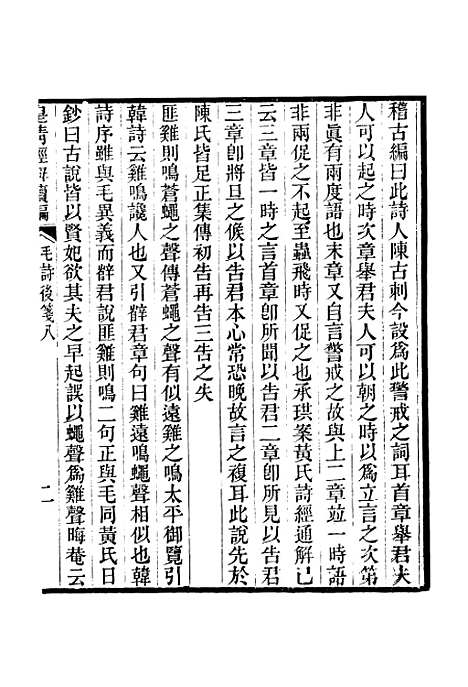 稽古編曰此詩人陳古刺今設爲此警戒之詞耳首章舉君夫
人可以起之時次章舉君夫人可以朝之時以爲立言之次第
非眞有兩度語也末章又自言警戒之故與上二章竝一時語
非兩促之不起至蟲飛時又促之也承珙案黃氏詩經通解已
云三章皆一時之言首章卽所聞以告君二章卽所見以告君
三章卽將旦之候以告君本心常恐晚故言之複耳此說先於
陳氏皆足正集傳初告再告三告之失
匪雞則鳴蒼蠅之聲傳蒼蠅之聲有似遠雞之鳴太平御覽引
韓詩云雞鳴讒人也又引薛君章句曰雞遠鳴蠅聲相似也韓
詩序雖與毛異義而薛君說匪雞則鳴二句正與毛同黃氏日
鈔曰古說皆以賢妃欲其夫之早起誤以蠅聲爲雞聲晦菴云
皇淸經解續編
毛詩後箋八
二